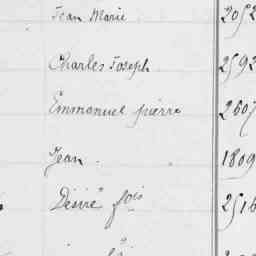 Jean Marie 2052
Charles Joseph 2592
Emmanuel pierre 2607
Jean . 1809
Désiré fois 2516